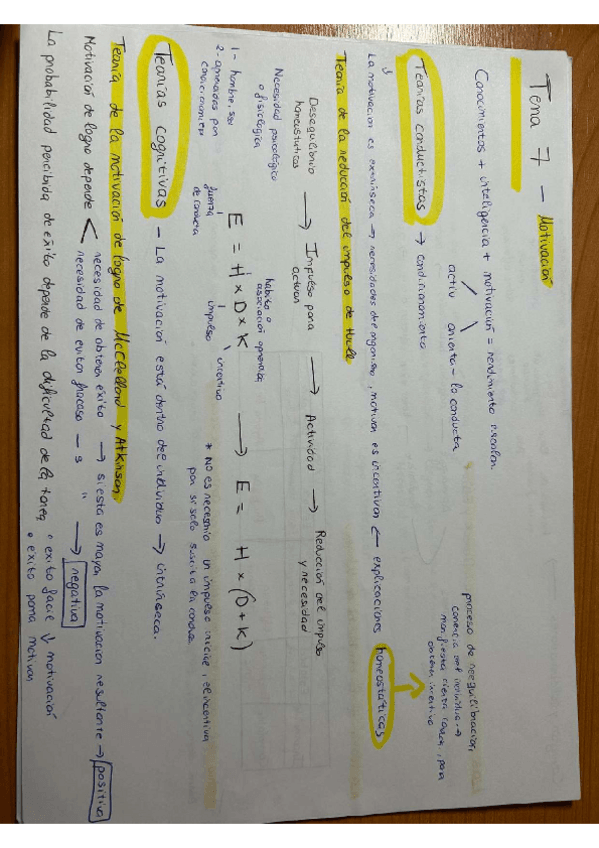 Tema 7 - Motivación
Conocimientos + inteligencia + motivación = rendimiento escolar.
activ orienta - la conducta
Teorías conductistas → condicionamiento
La motivación es extrínseca → necesidades del organismo, motivar es incentivar ← explicaciones homeostáticas
proceso de reequilibración,
carencia del individuo →
manifiesta cierta para
obtener incentivo
Teoría de la reducción del impulso de Hull
Desequilibrio homeostáticos → Impulso para actuar → Actividad → Reducción del impulso y necesidad
Necesidad psicológica
o fisiológica
1- hambre, sed
2- aprendidas por
condicionamien
E = H x D x K → E = H x (D + K)
fuerza
de conducta
habito o
asociación aprendida
impulso
incentivo
* No es necesario un impulso inicial, el incentivo
por si solo suscita la conduc
Teorías cognitivas - La motivación está dentro del individuo → intrínseca.
Teoría de la motivación de logro de McClelland y Atkinson
Motivación de logro depende < necesidad de obtener éxito → si esto es mayor, la motivación resultante → positiva
necesidad de evitar fracaso - s " → negativa
La probabilidad percibida de éxito depende de la dificultad de la tarea • exito facil ↓ motivación
• exito para motivar